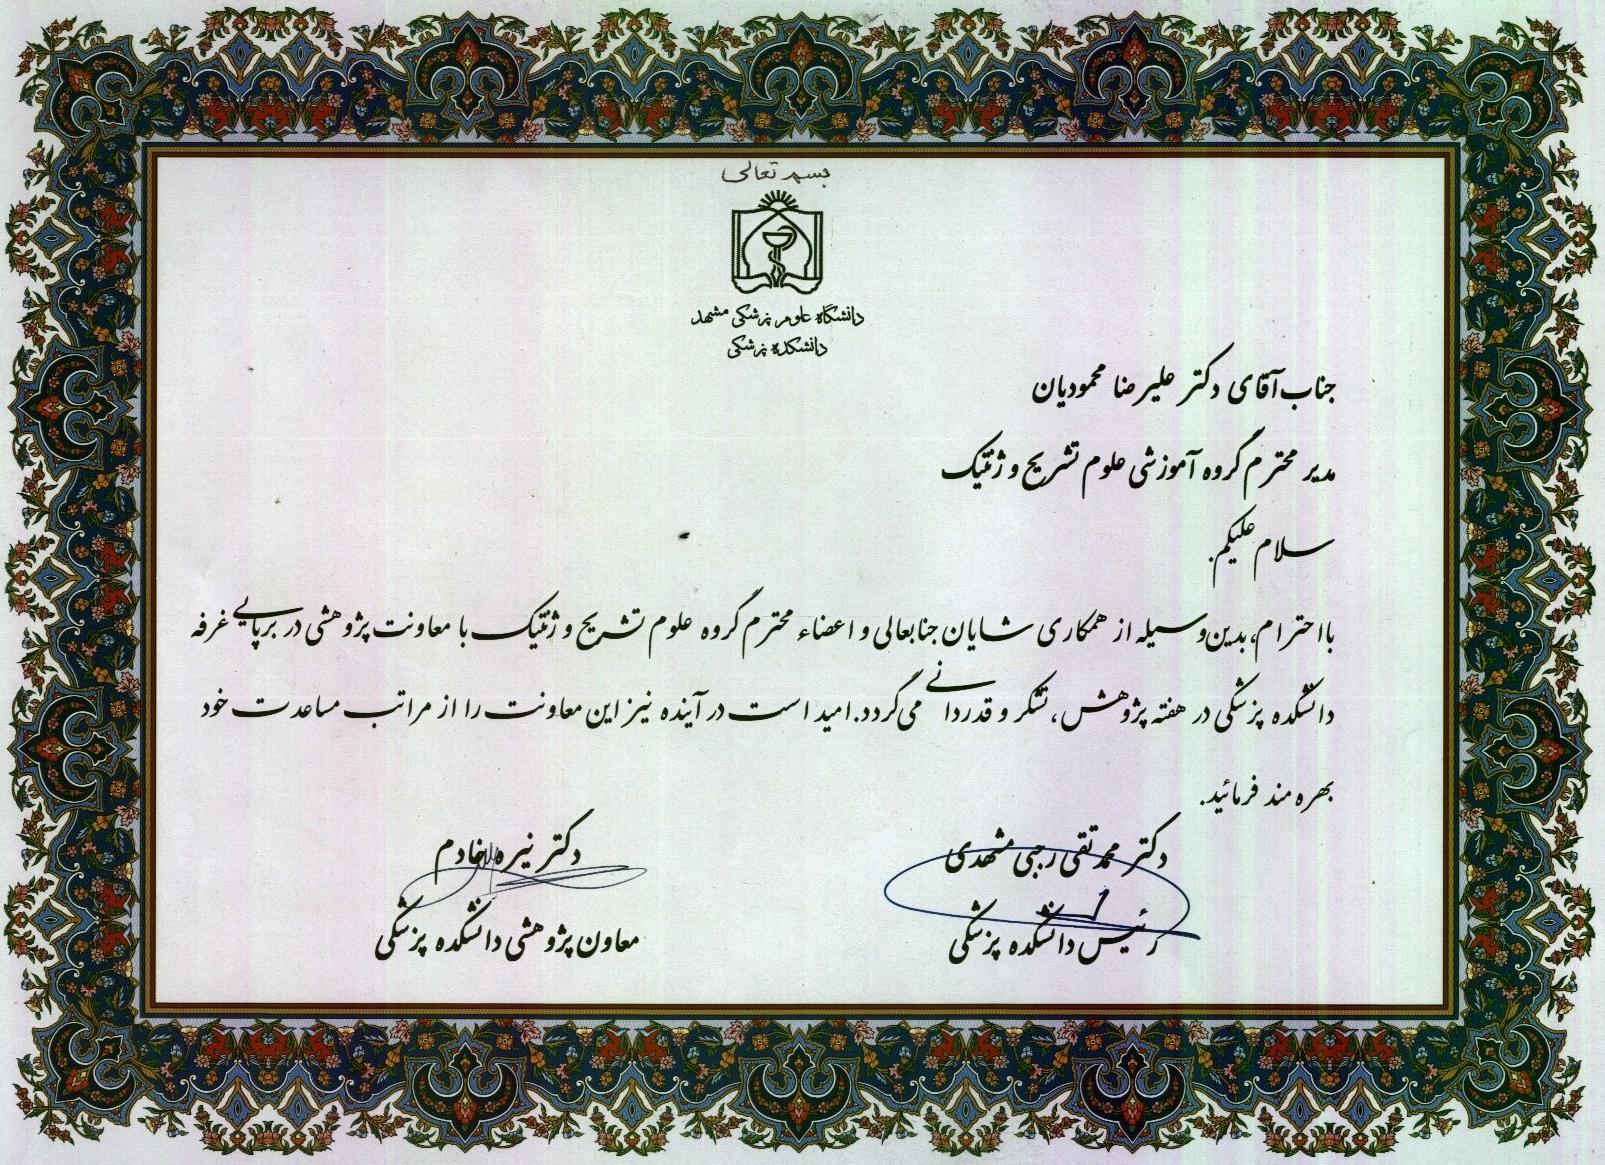 بسمه تعالی
دانشگاه علوم پزشکی مشهد
دانشکده پزشکی
جناب آقای دکتر علیرضا محمودیان
مدیر محترم گروه آموزشی علوم تشریح و ژنتیک
سلام علیکم.
با احترام، بدین وسیله از همکاری شایان جنابعالی و اعضاء محترم گروه علوم تشریح و ژنتیک با معاونت پژوهشی در برپایی غرفه
دانشکده پزشکی در هفته پژوهش، تشکر و قدردانی می گردد. امید است در آینده نیز این معاونت را از مراتب مساعدت خود
بهره مند فرمائید.
دکتر محمد تقی رجبی مشهدی
رئیس دانشکده پزشکی
دکتر نیره خادم
معاون پژوهشی دانشکده پزشکی